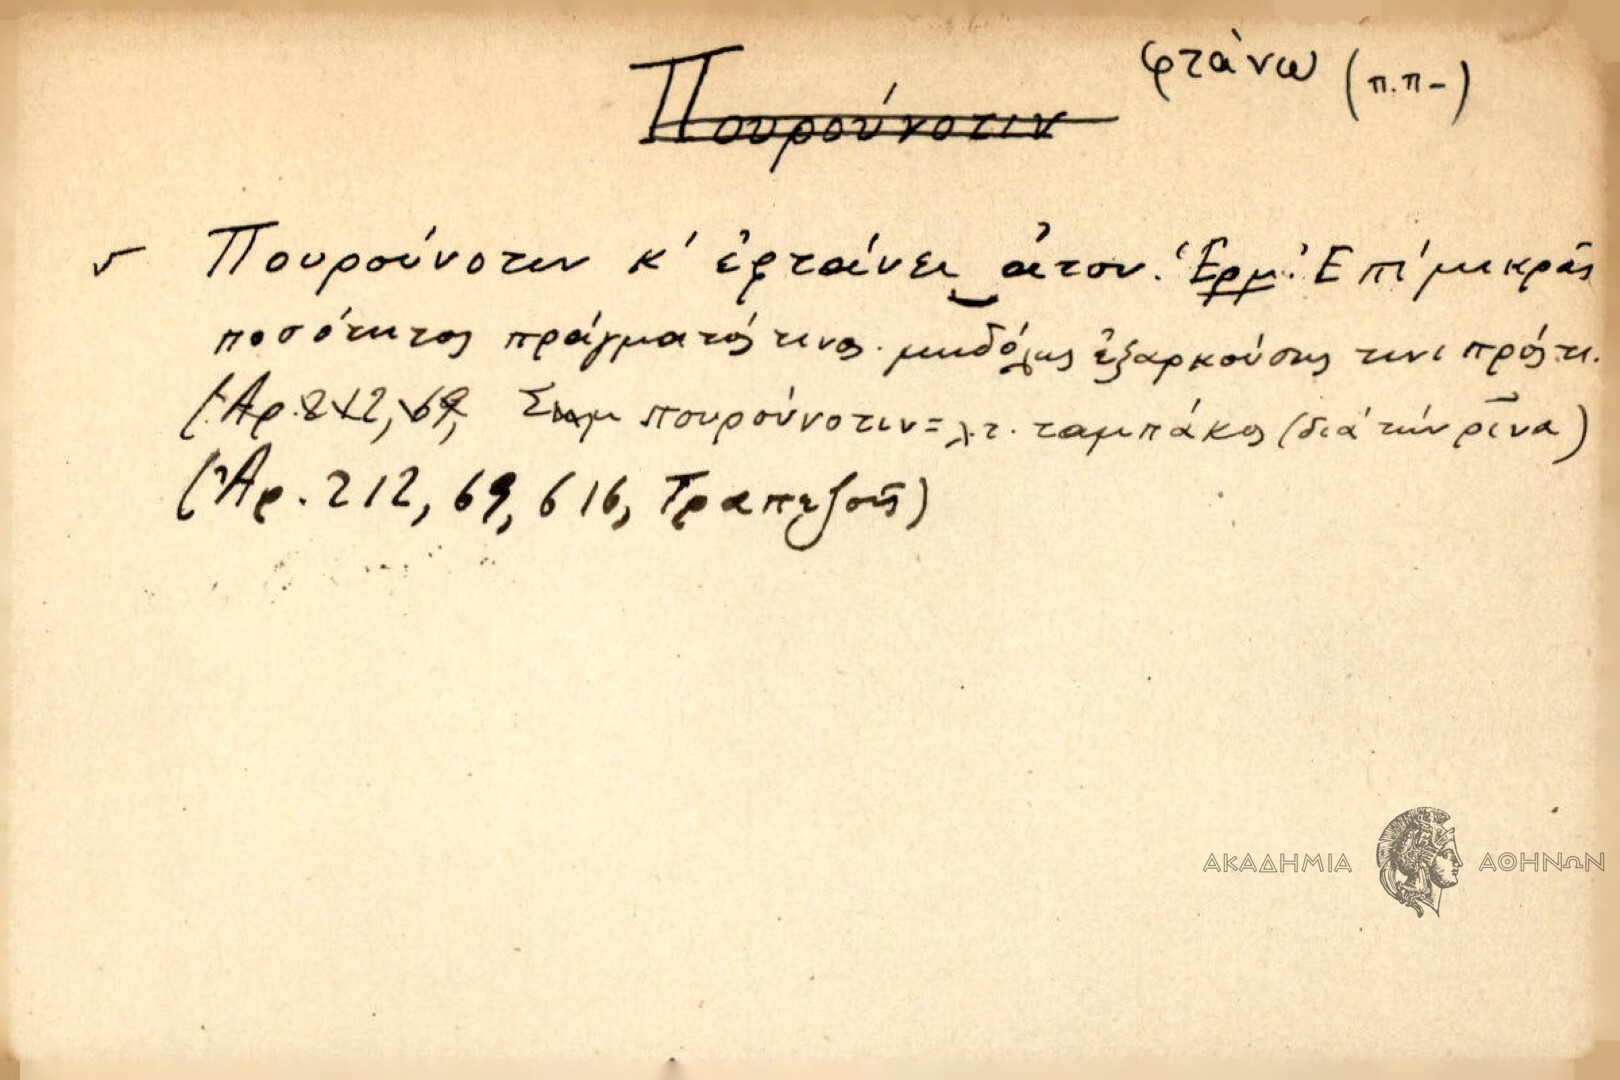 φτάνω (π.π-)
Πουρούνοτιν
Πουρούνοτιν κ' ἐφταίνει ἄτον. Ἑρμ. Ἐπί μικρᾶς
ποσότητος πράγματός τινος μηδόλως ἐξαρκούσης τινί πρός τι.
(Ἀρ. 212, 69, Σημ πουρούνοτιν = λ.τ. ταμπάκος (διά τήν ρῖνα)
(Ἀρ. 212, 69, 616, Τραπεζοῦς)
ΑΚΑΔΗΜΙΑ ΑΘΗΝΩΝ